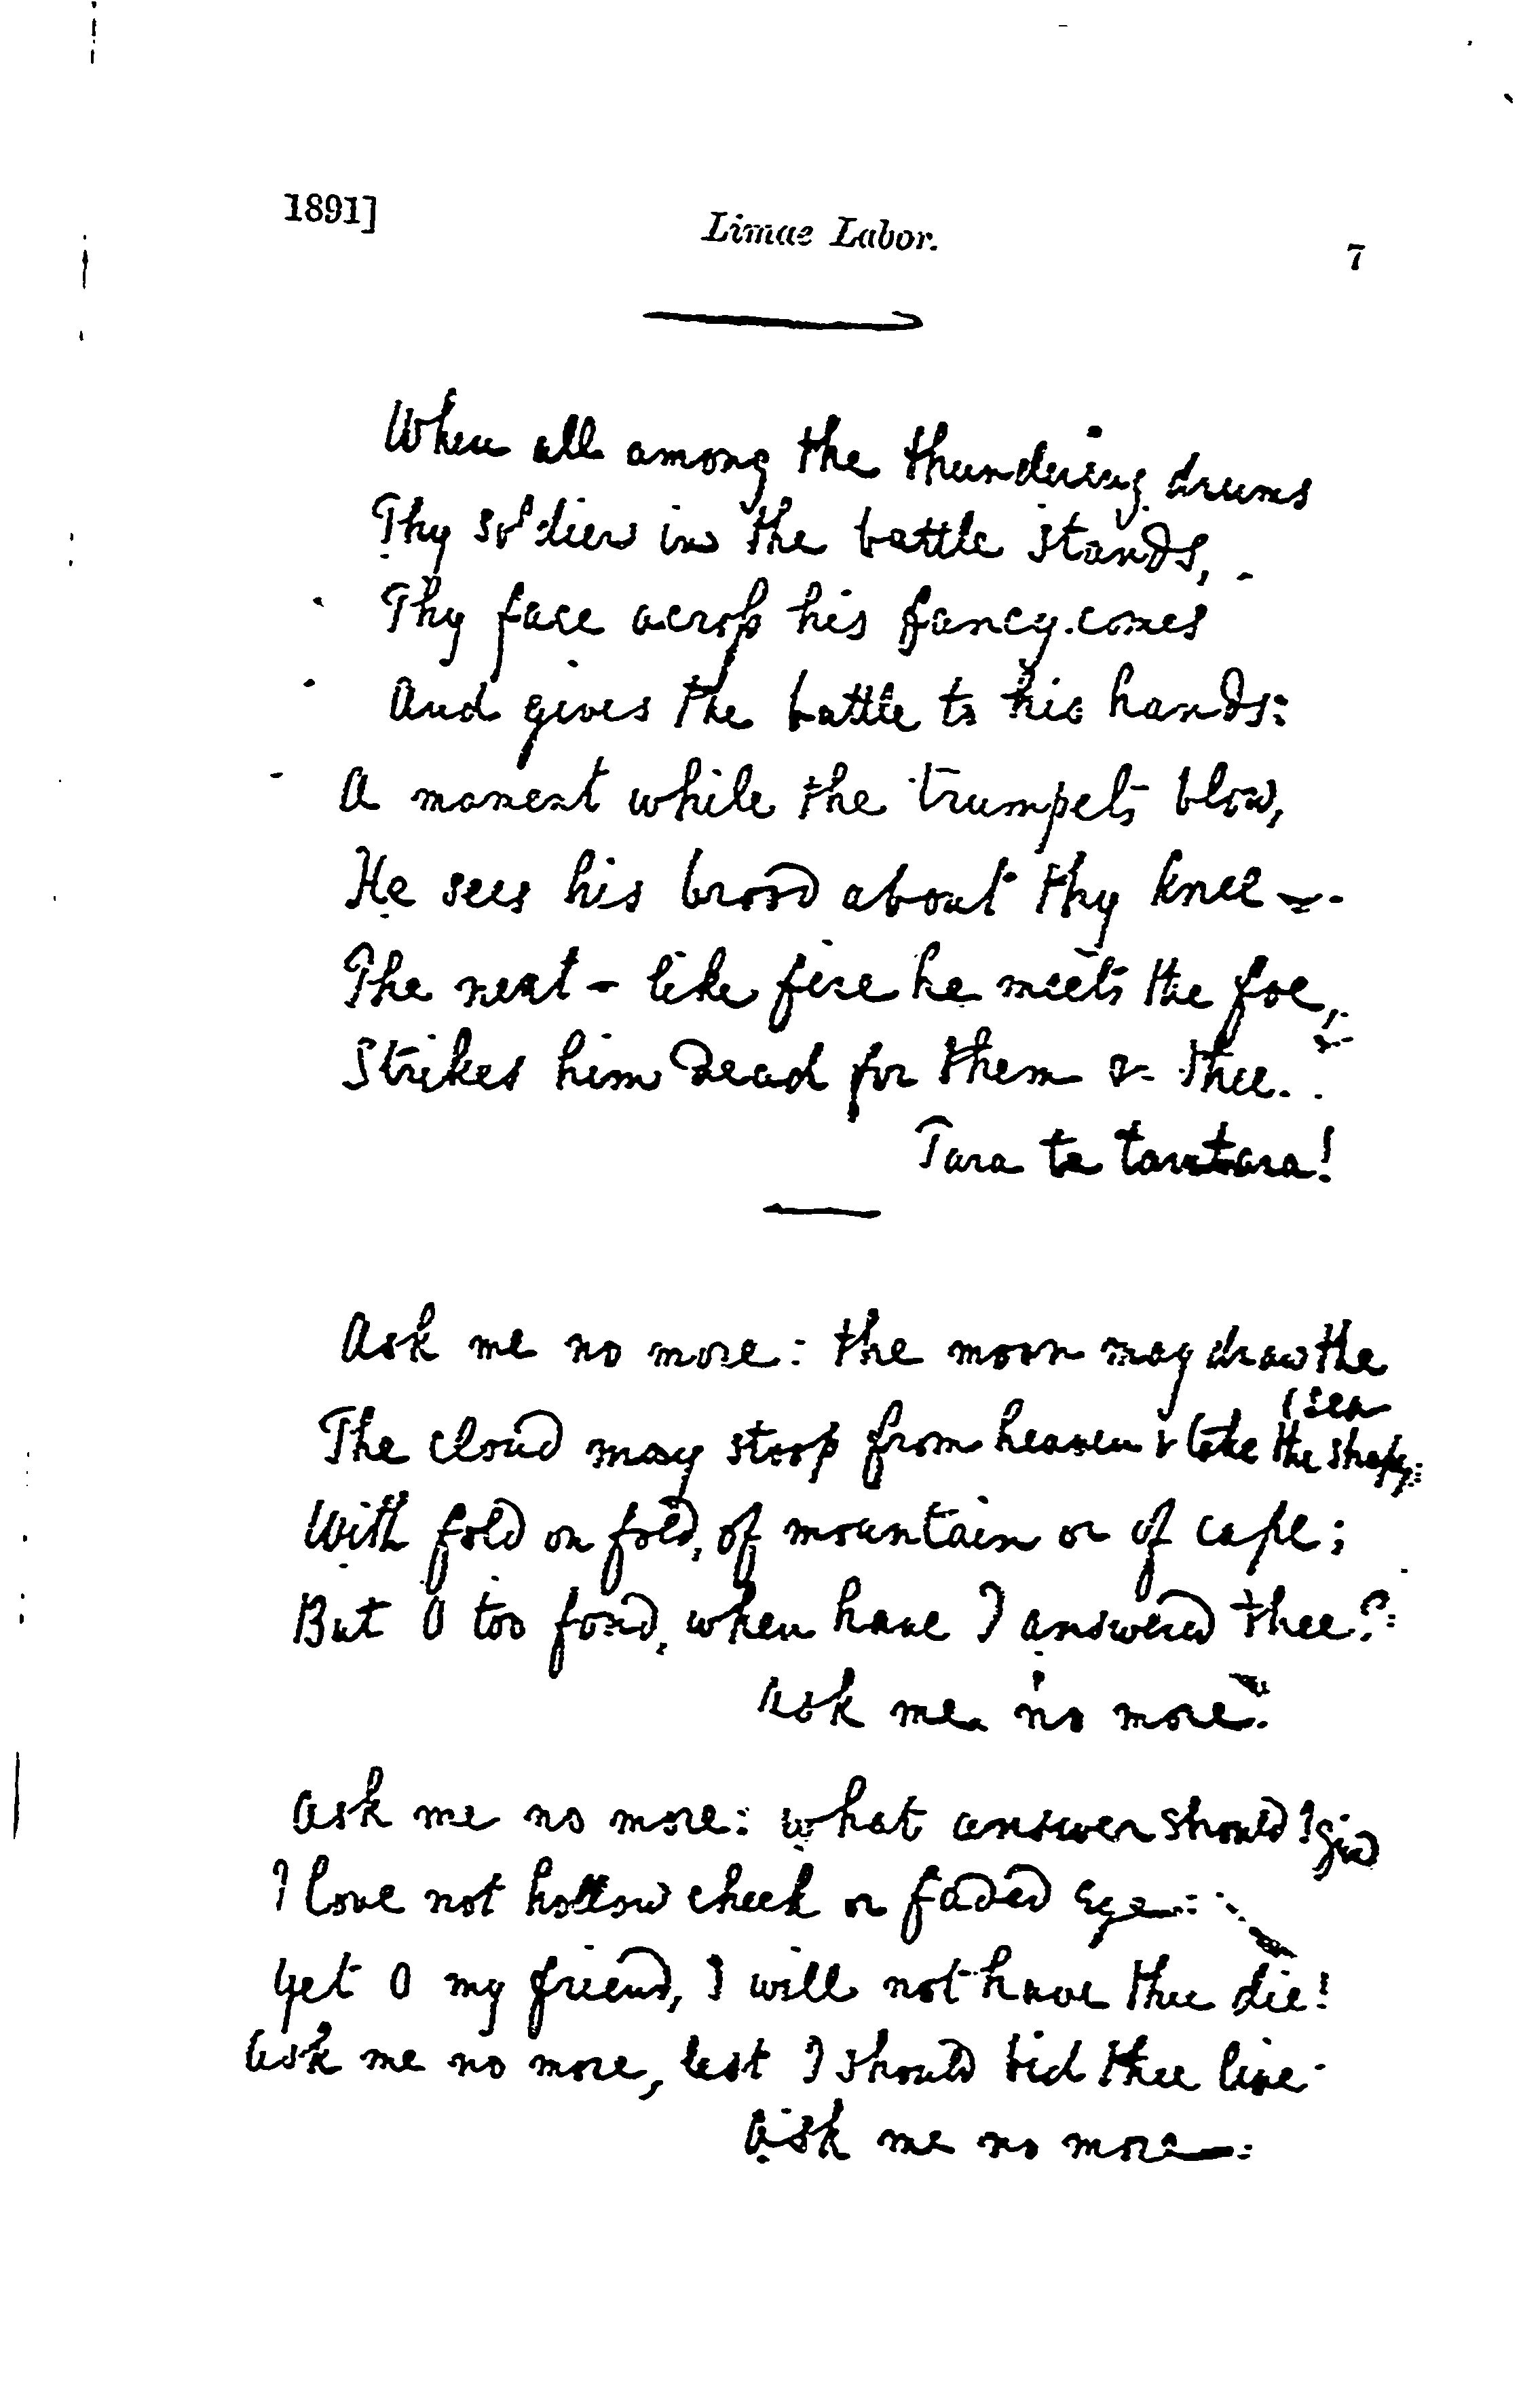 1891]
Limae Labor.
7
When all among the thundering drums
Thy soldier in the battle stands,
Thy face across his fancy comes
And gives the battle to his hands:
A moment while the trumpets blow,
He sees his brood about thy knee —
The next - like fire he meets the foe,
Strikes him dead for them & thee.
Tara ta tantara!
Ask me no more: the moon may draw the
(sea
The cloud may stoop from heaven & take the shape,
With fold on fold, of mountain or of cape;
But O too fond, when have I answered thee?
Ask me no more.
Ask me no more: what answer should I give
I love not hollow cheek or faded eye
Yet O my friend, I will not have thee die!
Ask me no more, lest I should bid thee live
Ask me no more